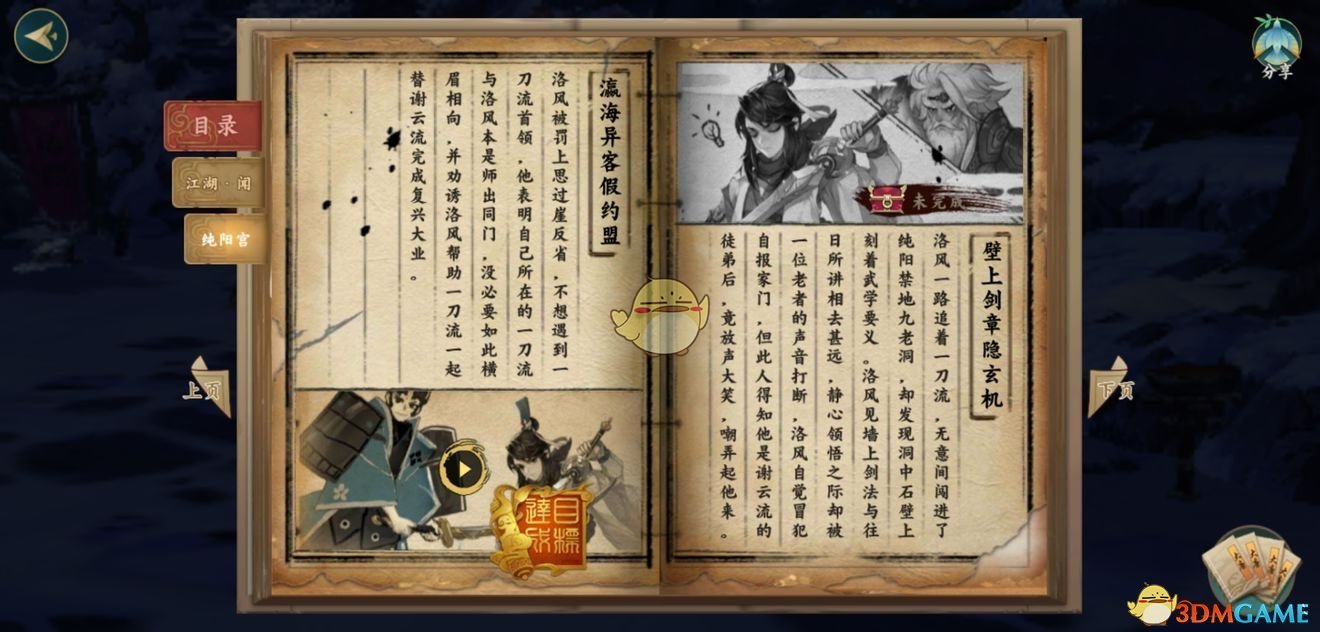 分享
目录
江湖·闻
纯阳宫
上页
下页
瀛海异客假约盟
洛风被罚上思过崖反省，不想遇到一
刀流首领，他表明自己所在的一刀流
与洛风本是师出同门，没必要如此横
眉相向，并劝诱洛风帮助一刀流一起
替谢云流完成复兴大业。
目標
達成
未完成
壁上剑章隐玄机
洛风一路追着一刀流，无意间闯进了
纯阳禁地九老洞，却发现洞中石壁上
刻着武学要义。洛风见墙上剑法与往
日所讲相去甚远，静心领悟之际却被
一位老者的声音打断，洛风自觉冒犯
自报家门，但此人得知他是谢云流的
徒弟后，竟放声大笑，嘲弄起他来。
3DMGAME